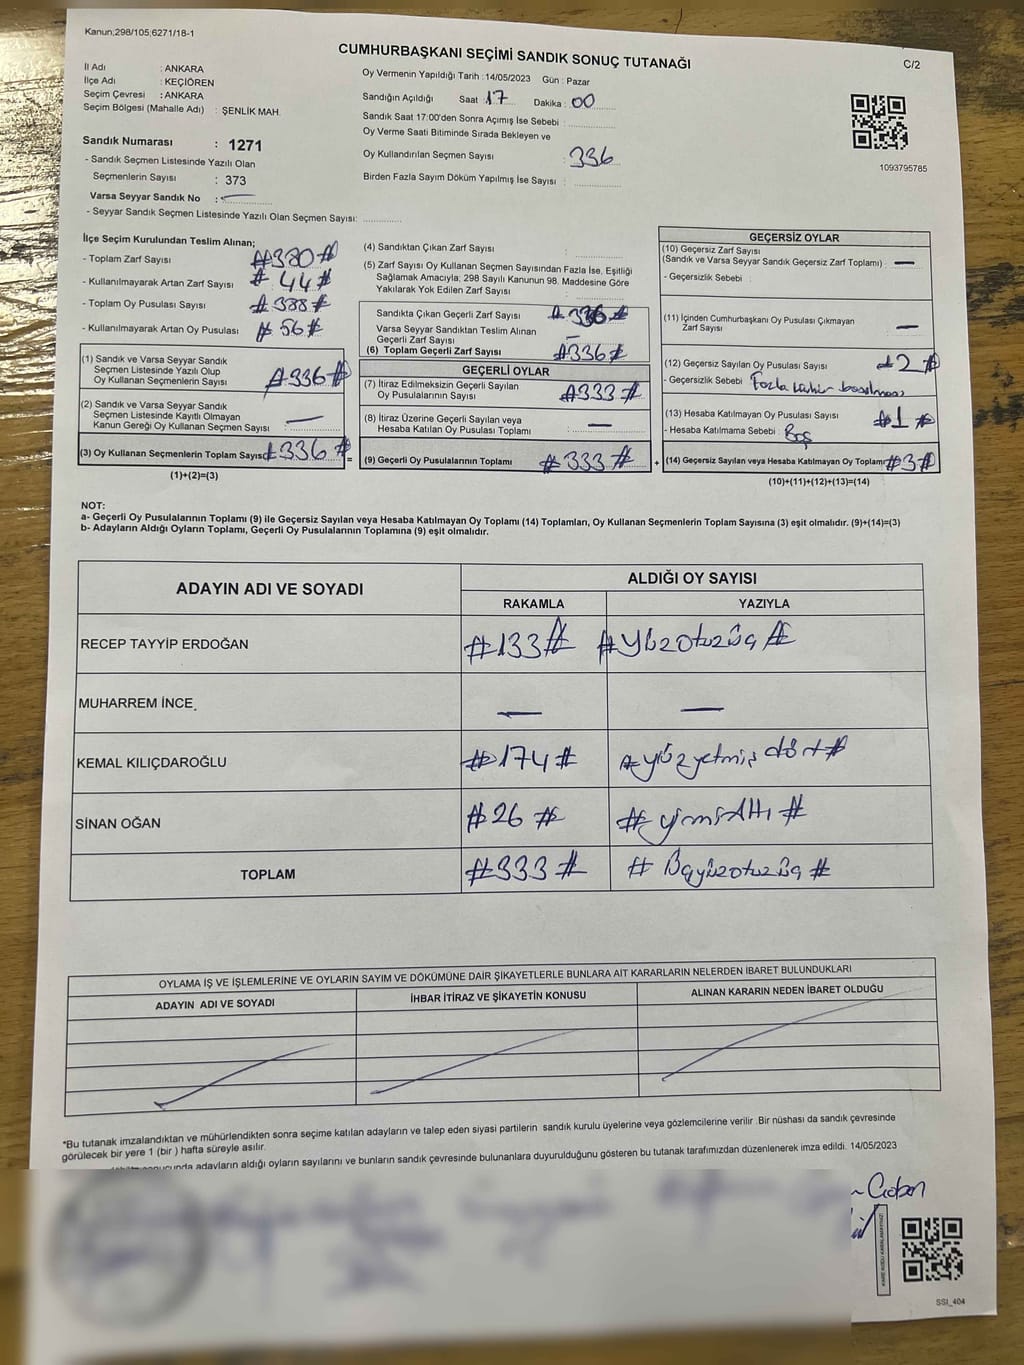 Kanun;298/105;6271/18-1
CUMHURBAŞKANI SEÇİMİ SANDIK SONUÇ TUTANAĞI
C/2
İl Adı : ANKARA
İlçe Adı : KEÇİÖREN
Seçim Çevresi : ANKARA
Seçim Bölgesi (Mahalle Adı) : ŞENLİK MAH.
Sandık Numarası : 1271
- Sandık Seçmen Listesinde Yazılı Olan
Seçmenlerin Sayısı : 373
Varsa Seyyar Sandık No : —
- Seyyar Sandık Seçmen Listesinde Yazılı Olan Seçmen Sayısı:
Oy Vermenin Yapıldığı Tarih :14/05/2023 Gün : Pazar
Sandığın Açıldığı Saat : 17 Dakika : 00
Sandık Saat 17:00'den Sonra Açımış İse Sebebi :
Oy Verme Saati Bitiminde Sırada Bekleyen ve
Oy Kullandırılan Seçmen Sayısı : 336
Birden Fazla Sayım Döküm Yapılmış İse Sayısı :
1093795785
İlçe Seçim Kurulundan Teslim Alınan;
- Toplam Zarf Sayısı #380#
- Kullanılmayarak Artan Zarf Sayısı # 44 #
- Toplam Oy Pusulası Sayısı # 388 #
- Kullanılmayarak Artan Oy Pusulası # 56 #
(1) Sandık ve Varsa Seyyar Sandık
Seçmen Listesinde Yazılı Olup
Oy Kullanan Seçmenlerin Sayısı : #336#
(2) Sandık ve Varsa Seyyar Sandık
Seçmen Listesinde Kayıtlı Olmayan
Kanun Gereği Oy Kullanan Seçmen Sayısı : —
(3) Oy Kullanan Seçmenlerin Toplam Sayısı #336 # =
(1)+(2)=(3)
(4) Sandıktan Çıkan Zarf Sayısı :
(5) Zarf Sayısı Oy Kullanan Seçmen Sayısından Fazla İse, Eşitliği
Sağlamak Amacıyla; 298 Sayılı Kanunun 98. Maddesine Göre
Yakılarak Yok Edilen Zarf Sayısı :
Sandıkta Çıkan Geçerli Zarf Sayısı # 336 #
Varsa Seyyar Sandıktan Teslim Alınan
Geçerli Zarf Sayısı : —
(6) Toplam Geçerli Zarf Sayısı #336#
GEÇERLİ OYLAR
(7) İtiraz Edilmeksizin Geçerli Sayılan
Oy Pusulalarının Sayısı : #333 #
(8) İtiraz Üzerine Geçerli Sayılan veya
Hesaba Katılan Oy Pusulası Toplamı : —
(9) Geçerli Oy Pusulalarının Toplamı # 333 # +
GEÇERSİZ OYLAR
(10) Geçersiz Zarf Sayısı
(Sandık ve Varsa Seyyar Sandık Geçersiz Zarf Toplamı) : —
- Geçersizlik Sebebi :
(11) İçinden Cumhurbaşkanı Oy Pusulası Çıkmayan
Zarf Sayısı : —
(12) Geçersiz Sayılan Oy Pusulası Sayısı #2 #
- Geçersizlik Sebebi : Fazla mühür basılması
(13) Hesaba Katılmayan Oy Pusulası Sayısı #1 #
- Hesaba Katılmama Sebebi : Boş
(14) Geçersiz Sayılan veya Hesaba Katılmayan Oy Toplamı #3#
(10)+(11)+(12)+(13)=(14)
NOT:
a- Geçerli Oy Pusulalarının Toplamı (9) ile Geçersiz Sayılan veya Hesaba Katılmayan Oy Toplamı (14) Toplamları, Oy Kullanan Seçmenlerin Toplam Sayısına (3) eşit olmalıdır. (9)+(14)=(3)
b- Adayların Aldığı Oyların Toplamı, Geçerli Oy Pusulalarının Toplamına (9) eşit olmalıdır.
ADAYIN ADI VE SOYADI ALDIĞI OY SAYISI
RAKAMLA YAZIYLA
RECEP TAYYİP ERDOĞAN #133# #Yüzotuzüç #
MUHARREM İNCE — —
KEMAL KILIÇDAROĞLU #174# #yüzyetmiş dört#
SİNAN OĞAN #26 # # yirmiAltı #
TOPLAM #333 # # Üçyüzotuzüç #
OYLAMA İŞ VE İŞLEMLERİNE VE OYLARIN SAYIM VE DÖKÜMÜNE DAİR ŞİKAYETLERLE BUNLARA AİT KARARLARIN NELERDEN İBARET BULUNDUKLARI
ADAYIN ADI VE SOYADI İHBAR İTİRAZ VE ŞİKAYETİN KONUSU ALINAN KARARIN NEDEN İBARET OLDUĞU
*Bu tutanak imzalandıktan ve mühürlendikten sonra seçime katılan adayların ve talep eden siyasi partilerin sandık kurulu üyelerine veya gözlemcilerine verilir. Bir nüshası da sandık çevresinde
görülecek bir yere 1 (bir) hafta süreyle asılır.
adayların aldığı oyların sayılarını ve bunların sandık çevresinde bulunanlara duyurulduğunu gösteren bu tutanak tarafımızdan düzenlenerek imza edildi. 14/05/2023
SSI_404